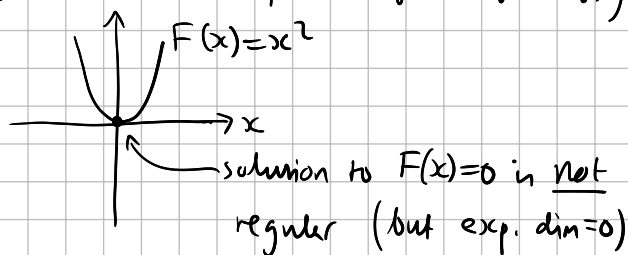 F(x)=x²
x
solution to F(x)=0 is not
regular (but exp. dim=0)